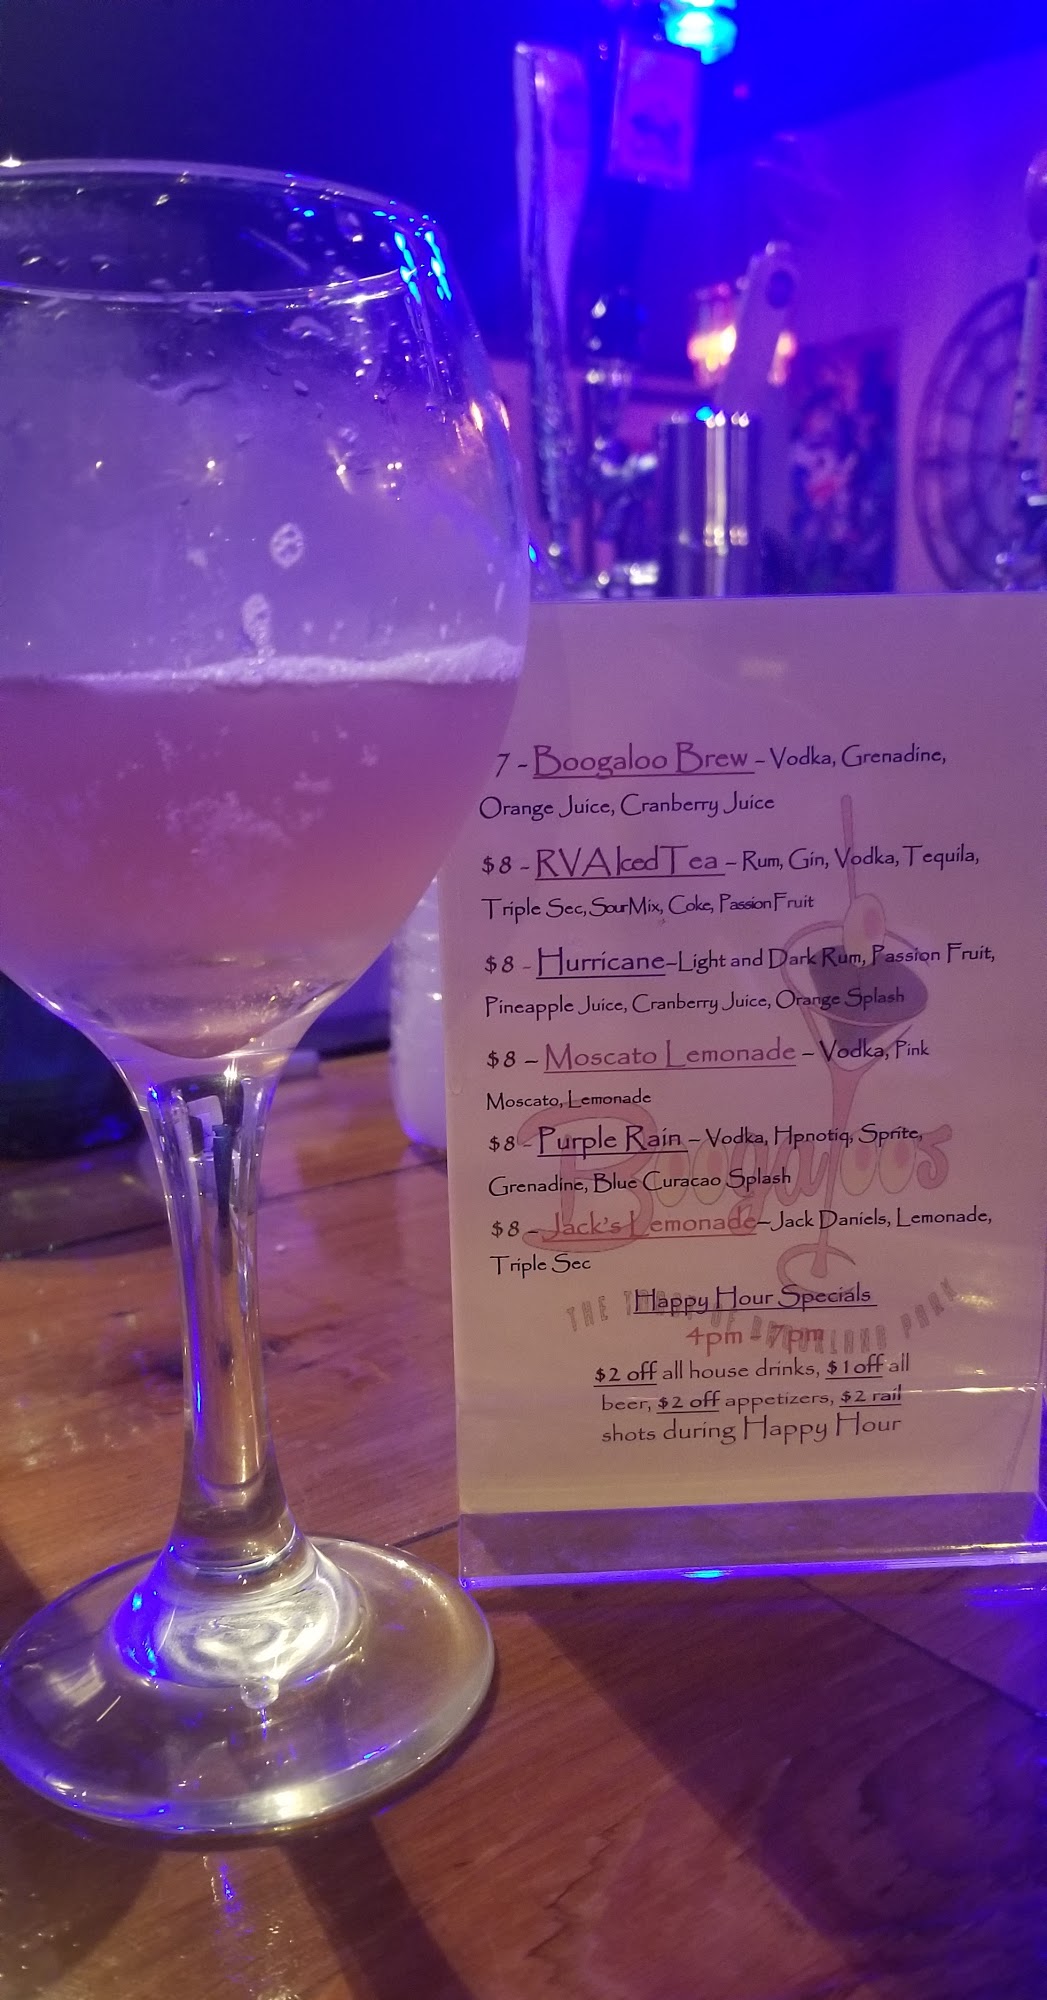 7 - Boogaloo Brew - Vodka, Grenadine,
Orange Juice, Cranberry Juice
$8 - RVA Iced Tea - Rum, Gin, Vodka, Tequila,
Triple Sec, Sour Mix, Coke, Passion Fruit
$8 - Hurricane–Light and Dark Rum, Passion Fruit,
Pineapple Juice, Cranberry Juice, Orange Splash
$8 – Moscato Lemonade – Vodka, Pink
Moscato, Lemonade
$8 - Purple Rain – Vodka, Hpnotiq, Sprite,
Grenadine, Blue Curacao Splash
$8 – Jack's Lemonade–Jack Daniels, Lemonade,
Triple Sec
Boogaloos
Happy Hour Specials
THE OF PARK
4pm - 7pm
$2 off all house drinks, $1 off all
beer, $2 off appetizers, $2 rail
shots during Happy Hour